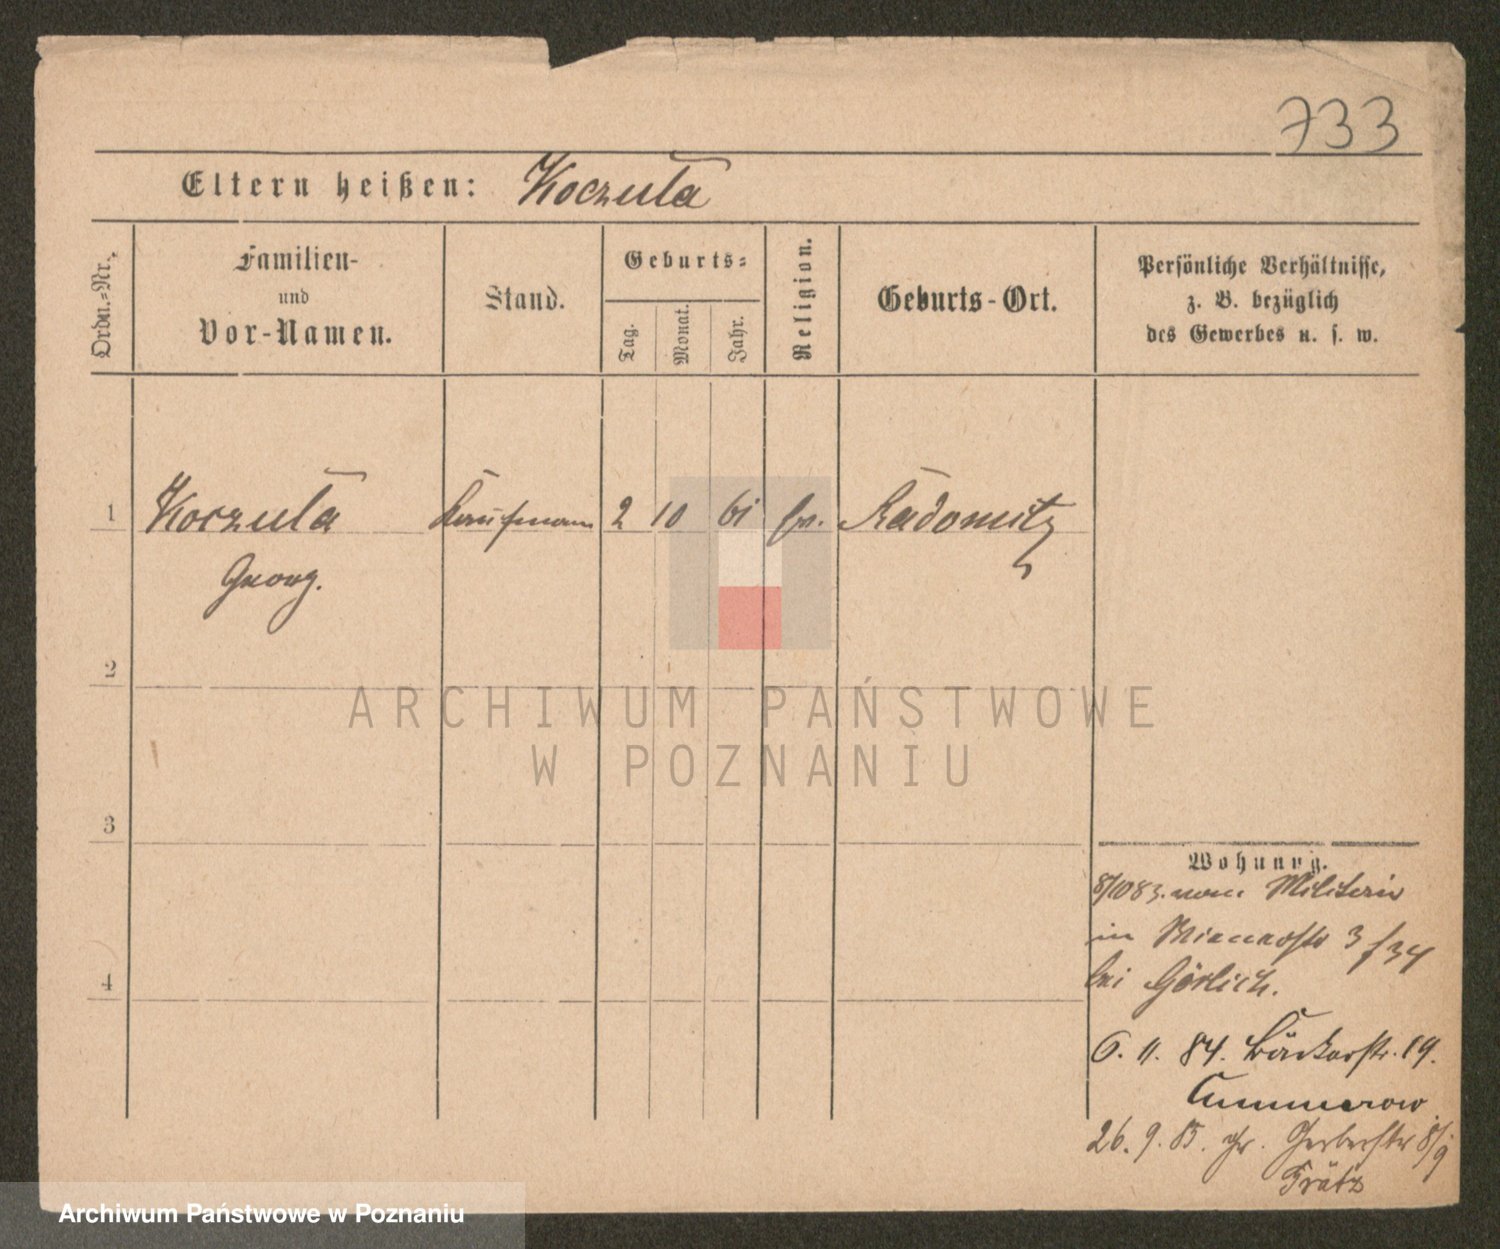 733
Eltern heißen: Koczula
Ordn.-Nr.
Familien-
und
Vor-Namen.
Stand.
Geburts-
Tag.
Monat.
Jahr.
Religion.
Geburts-Ort.
Persönliche Verhältnisse,
z. B. bezüglich
des Gewerbes u. s. w.
1 Koczula Kaufmann 2 10 61 Radomitz
Georg.
2
3
4
Wohnung.
8/10 83. vom Militair
in 3 / 34
bei Görlich.
6. 11. 84. Bäckerstr. 19.
Cummerow
26. 9. 85. gr. Gerberstr 8/9
Trätz
ARCHIWUM PAŃSTWOWE
W POZNANIU
Archiwum Państwowe w Poznaniu